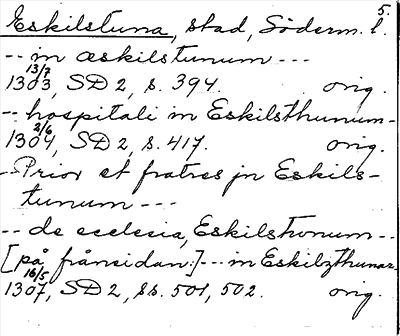 5.
Eskilstuna, stad, Söderm. l.
-- in æskilstunum ---
13/7
1303, SD 2, s. 394. orig.
-- hospitali in Eskilsthunum --
2/6
1304, SD 2, s. 417. orig.
-- Prior et fratres jn Eskils-
tunum ---
-- de ecclesia, Eskilstvnum --
[på frånsidan:] --- in Eskilzthunar
16/5
1307, SD 2, ss. 501, 502. orig.